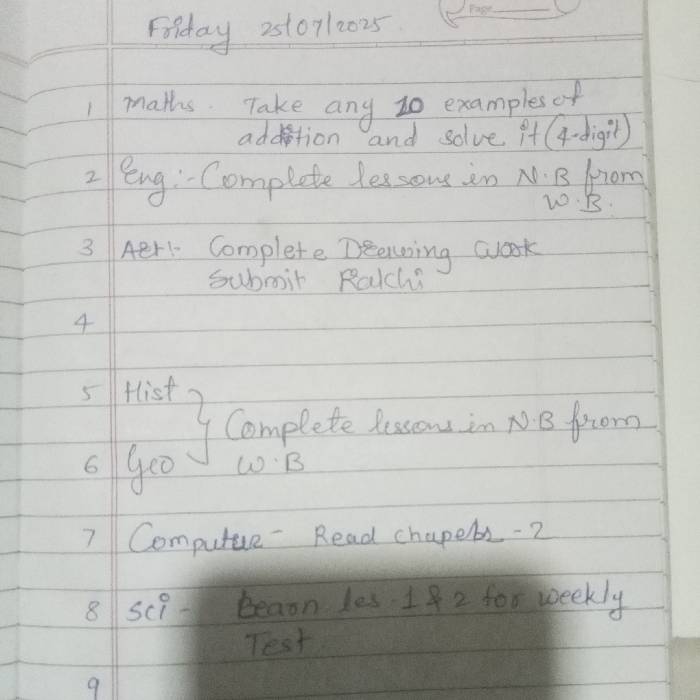 Page
Friday 25/07/2025
1 Maths. Take any 10 examples of
addition and solve it (4-digit)
2 Eng:- Complete lessons in N.B from
W.B.
3 Art:- Complete Drawing work
Submit Rakhi
4
5 Hist
Complete lessons in N.B from
6 Geo W.B
7 Computer - Read chapets - 2
8 Sci - Learn les. 1 & 2 for weekly
Test
9